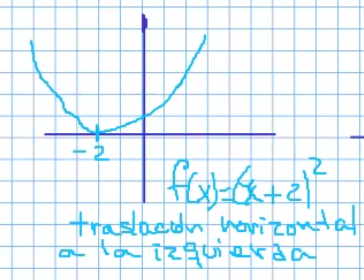 -2
f(x)=(x+2)²
traslación horizontal
a la izquierda